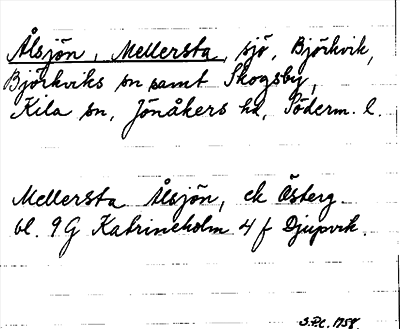 Ålsjön, Mellersta, sjö, Björkvik,
Björkviks sn samt Skogsby,
Kila sn, Jönåkers hd, Söderm. l.
Mellersta Ålsjön, ek Österg.
bl. 9G Katrineholm 4 f Djupvik.
S.P.C. 1958.